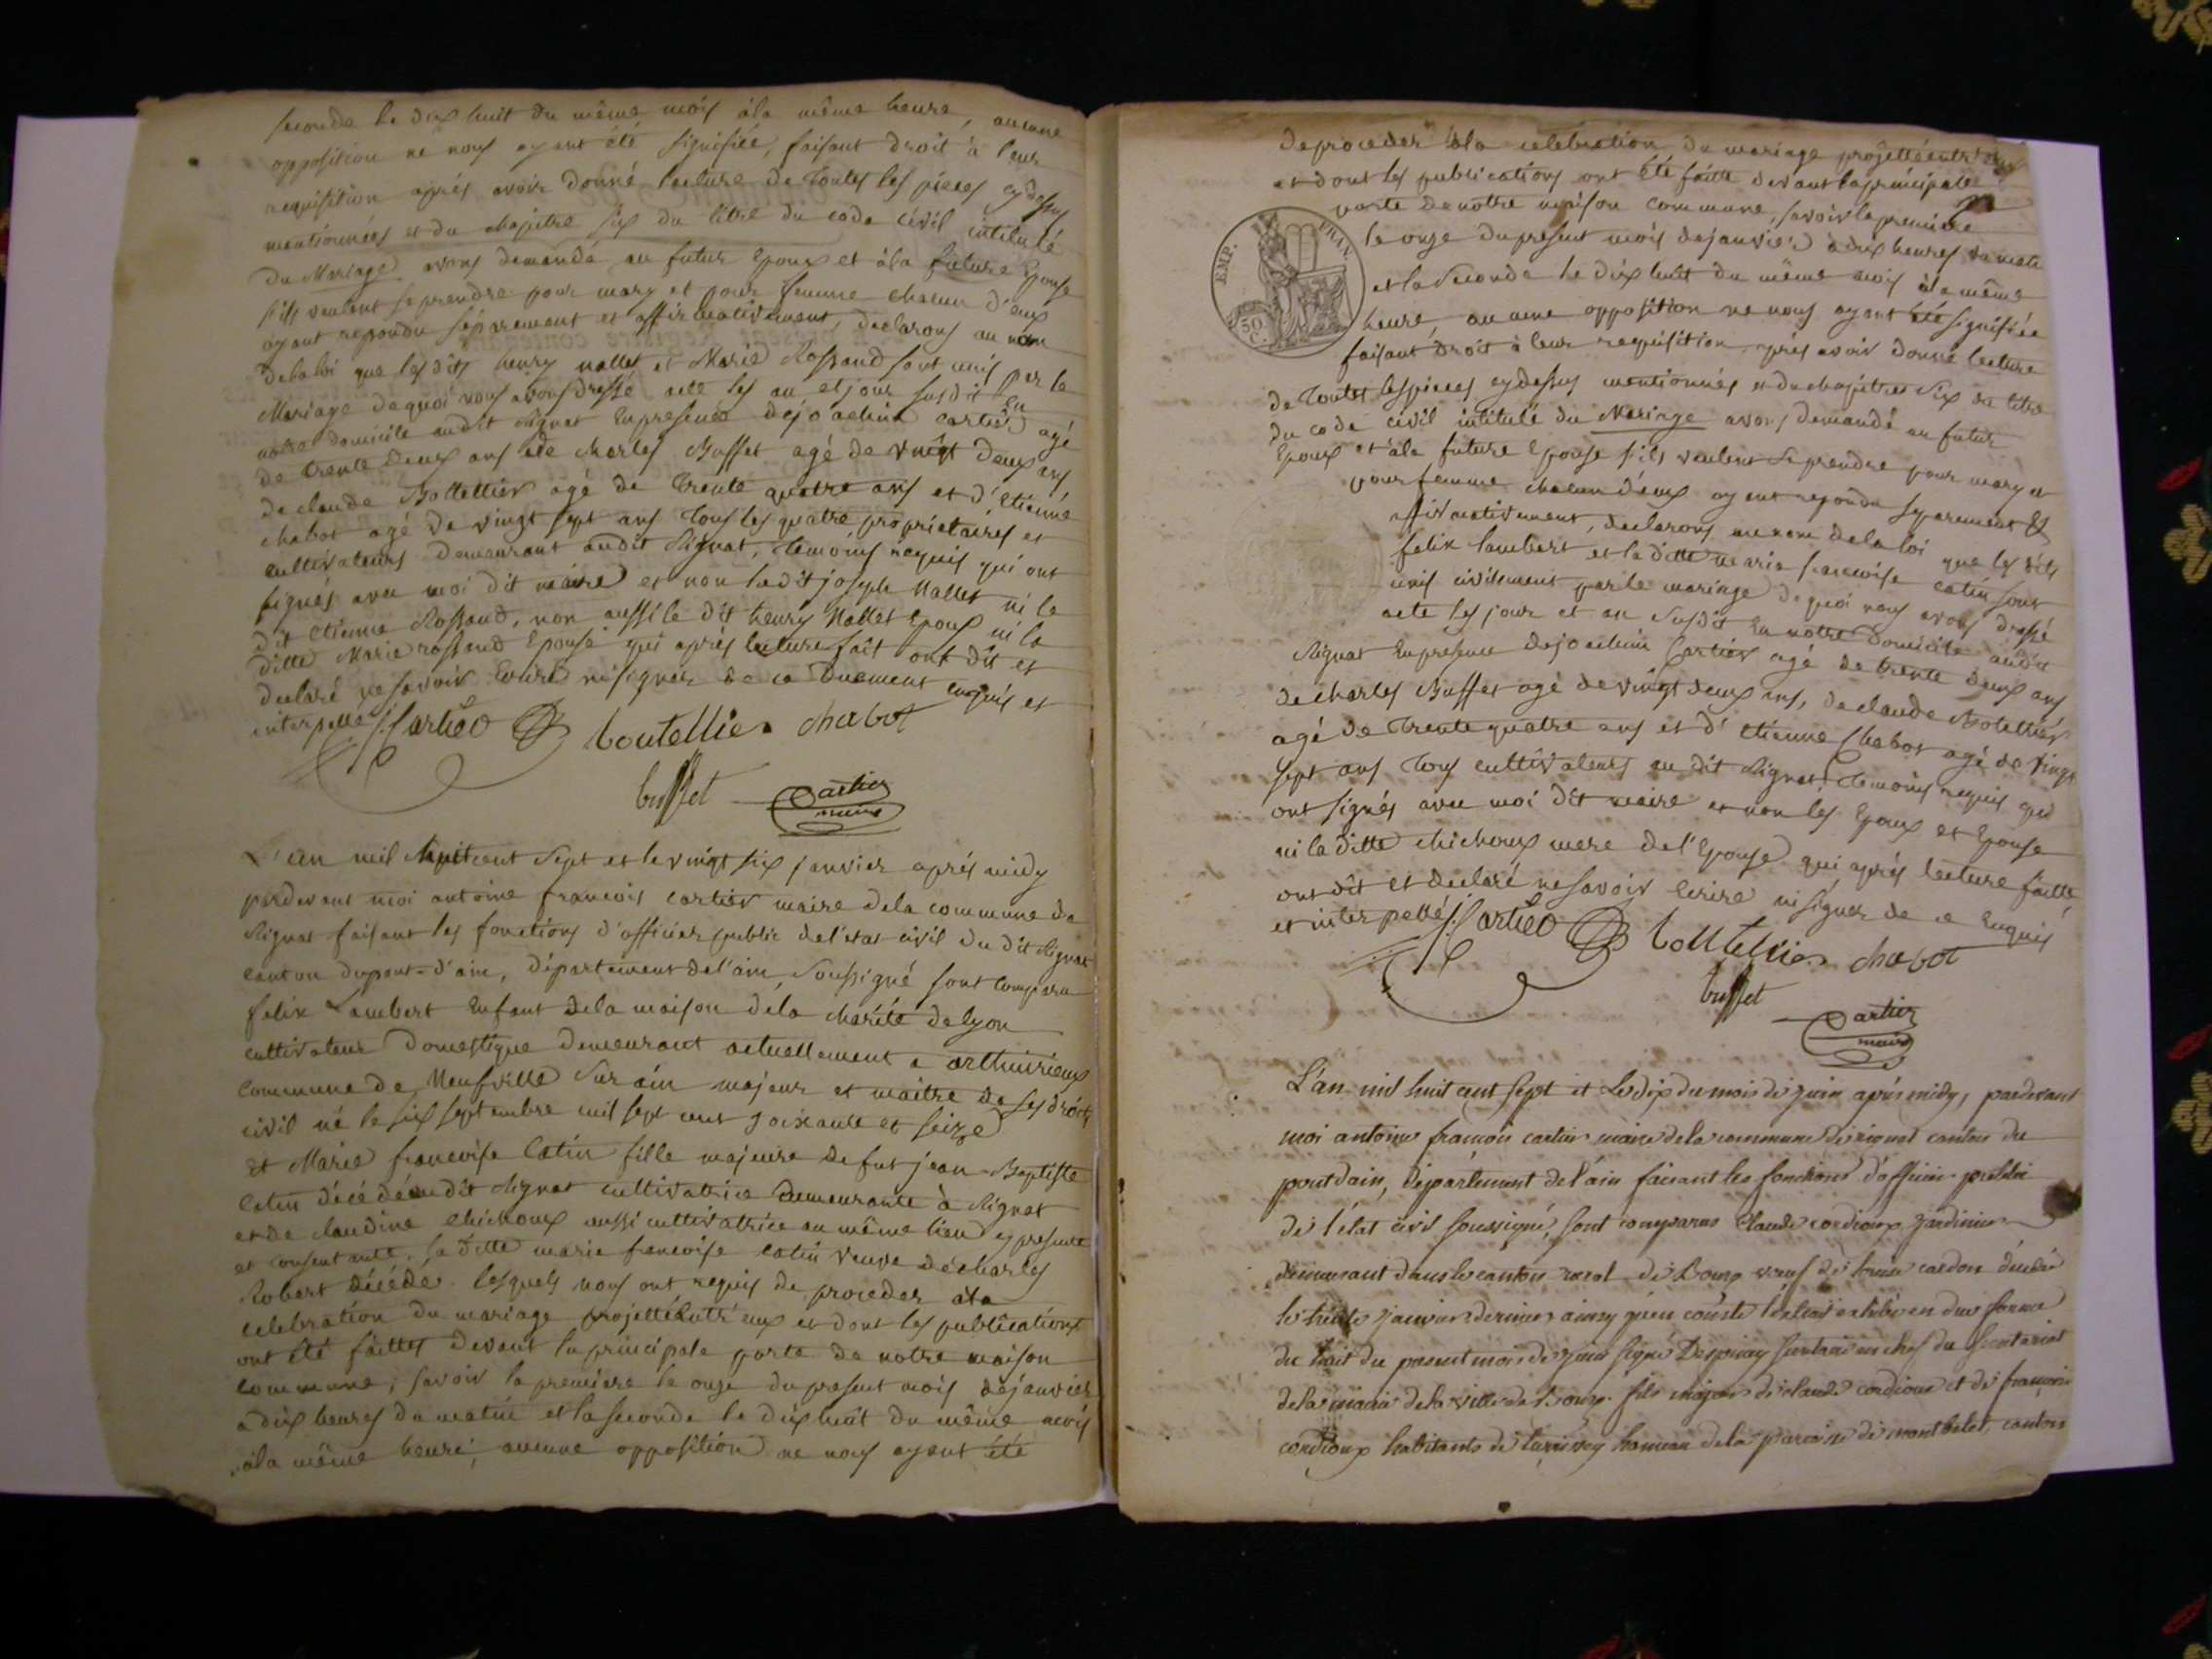 seconde le dix huit du même mois à la même heure, aucune
opposition ne nous ayant été signifiée, faisant droit à leur
requisition après avoir donné lecture de toutes les pieces cy dessus
mentionnées et du chapitre six du titre du code civil intitulé
du Mariage avons demandé au futur Epoux et à la future Epouse
s'ils veulent se prendre pour mary et pour femme chacun d'eux
ayant repondu séparement et affirmativement, declarons au nom
de la loi que les dits henry mallet et Marie Rossand sont unis par le
Mariage de quoi nous avons dressé acte les an et jour susdit En
notre domicile au dit Rignat En presence de joachim Cartier agé
de trente deux ans de charles Buffet agé de vingt deux ans
de claude Bottellier agé de trente quatre ans et d'Etienne
chabot agé de vingt sept ans tous les quatre propriétaires et
cultivateurs demeurant au dit Rignat, temoins requis qui ont
signés avec moi dit maire et non le dit joseph Mallet ni le
dit etienne Rossand, non aussi le dit henry Mallet Epoux ni la
ditte Marie rossand Epouse qui après lecture fait ont dit et
declaré ne savoir Ecrire ni signer de ce duement enquis et
interpellé J. Cartier boutellier chabot
buffet Cartier
maire
L'an mil huit cent sept et le vingt six janvier après midy
pardevant moi antoine francois cartier maire de la commune de
Rignat faisant les fonctions d'officier public de l'etat civil du dit Rignat
canton du pont-d'ain, département de l'ain, soussigné sont comparu
felix Lambert Enfant de la maison de la charité de lyon
cultivateur domestique demeurant actuellement a arthuirieux
commune de Neufville sur ain majeur et maitre de ses droits
civil né le six septembre mil sept cent soixante et seize
Et Marie francoise Catin fille majeure de fut jean-Baptiste
Catin décédé au dit Rignat cultivatrice demeurante à Rignat
et de claudine chichoux aussi cultivatrice au même lieu cy presente
et consentante. la ditte marie francoise catin veuve de charles
Robert décédé. lesquels nous ont requis de proceder a la
celebration du mariage projetté entr'eux et dont les publications
ont été faittes devant la principale porte de notre maison
commune; savoir la premiere le onze du present mois de janvier
a dix heures du matin et la seconde le dix huit du même mois
à la même heure, aucune opposition ne nous ayant été
de proceder à la celebration du mariage projetté entr'eux
et dont les publications ont été faitte devant la principale
porte de notre maison commune, savoir la premiere
le onze du present mois de janvier à dix heures du matin
et la seconde le dix huit du même mois à la même
heure, aucune opposition ne nous ayant été signifiée
faisant droit à leur requisition après avoir donné lecture
de toutes les pieces cy dessus mentionnées et du chapitre six du titre
du code civil intitulé du Mariage avons demandé au futur
Epoux et à la future Epouse s'ils veulent se prendre pour mary et
pour femme chacun d'eux ayant repondu séparement et
affirmativement, declarons au nom de la loi que les dits
felix lambert et la ditte marie francoise catin sont
unis civilement par le mariage de quoi nous avons dressé
acte les jour et an susdit En notre domicile au dit
Rignat En presence de joachim Cartier agé de trente deux ans
de charles Buffet agé de vingt deux ans, de claude Botellier
agé de trente quatre ans et d'etienne Chabot agé de vingt
sept ans tous cultivateurs au dit Rignat, temoins requis qui
ont signés avec moi dit maire et non les Epoux et Epouse
ni la ditte chichoux mere de l'Epouse qui après lecture faitte
ont dit et declaré ne savoir Ecrire ni signer de ce Enquis
et interpellé J. Cartier boutellier chabot
buffet
Cartier
maire
EMP. FRAN.
50 C.
L'an mil huit cent sept et le dix du mois de juin après midy, pardevant
moi antoine françois cartier maire de la commune de rignat canton du
pont dain, département de l'ain faisant les fonctions d'officier public
de l'état civil soussigné, sont comparus Claude cordioux jardinier
demeurant dans le canton rural de Bourg veuf de cardon décédée
le trente janvier dernier ainsy qu'en conste l'extrait exhibé en due forme
du huit du present mois de juin signé secretaire en chef du secretariat
de la mairie de la ville de Bourg. fils majeur de claude cordioux et de françoise
cordioux habitants de hameau de la paroisse de montbelet, canton